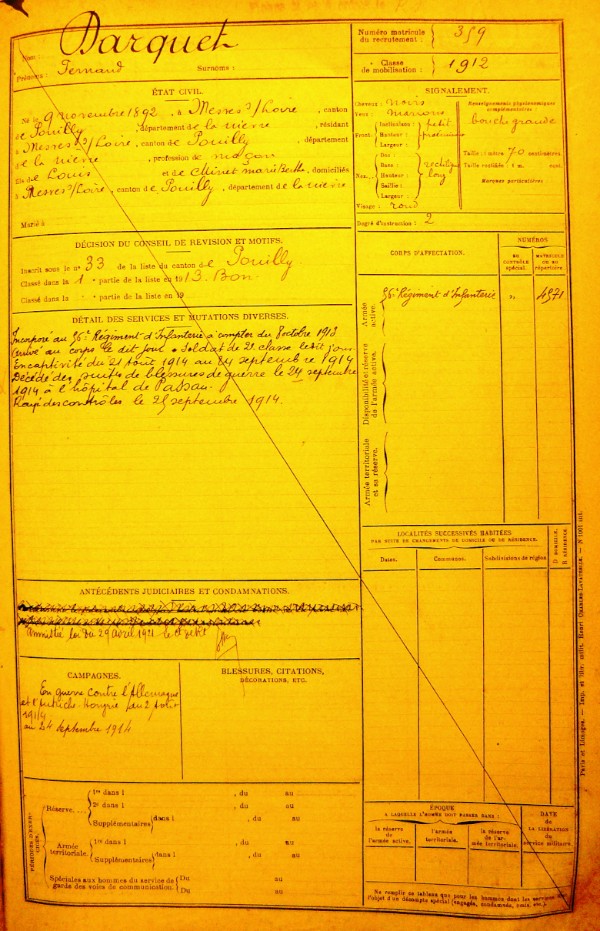 Nom : Darquet
Prénoms : Fernand Surnoms :
Numéro matricule du recrutement : 359
Classe de mobilisation : 1912
ÉTAT CIVIL.
Né le 9 novembre 1892, à Mesves s/Loire, canton
de Pouilly, département de la nièvre, résidant
à Mesves s/Loire, canton de Pouilly, département
de la nièvre, profession de maçon
fils de Louis et de Minet marie Berthe, domiciliés
à Mesves s/Loire, canton de Pouilly, département de la nièvre
Marié à
SIGNALEMENT.
Cheveux : noirs
Yeux : marrons
Front : Inclinaison : petit
Hauteur :
Largeur :
Nez : Dos :
Base : rectiligne
Hauteur : long
Saillie :
Largeur :
Visage : rond
Renseignements physionomiques complémentaires :
bouche grande
Taille : 1 mètre 70 centimètres
Taille rectifiée : 1 m. cent.
Marques particulières
Degré d'instruction : 2
DÉCISION DU CONSEIL DE RÉVISION ET MOTIFS.
Inscrit sous le n° 33 de la liste du canton de Pouilly
Classé dans la 1 partie de la liste en 1913. Bon.
Classé dans la partie de la liste en 19
DÉTAIL DES SERVICES ET MUTATIONS DIVERSES.
Incorporé au 56e Régiment d'Infanterie à compter du 8 octobre 1913
Arrivé au corps le dit jour. Soldat de 2e classe le dit jour
En captivité du 21 Août 1914 au 24 septembre 1914
Décédé des suites de blessures de guerre le 24 septembre
1914 à l'hôpital de Passau.
Rayé des contrôles le 25 septembre 1914.
CORPS D'AFFECTATION.
NUMÉROS
AU CONTRÔLE SPÉCIAL.
MATRICULE OU AU RÉPERTOIRE
Armée active.
56e Régiment d'Infanterie 4571
Disponibilité et réserve de l'armée active.
Armée territoriale et sa réserve.
LOCALITÉS SUCCESSIVES HABITÉES
PAR SUITE DE CHANGEMENTS DE DOMICILE OU DE RÉSIDENCE.
Dates. Communes. Subdivisions de région. D. DOMICILE. R. RÉSIDENCE
ANTÉCÉDENTS JUDICIAIRES ET CONDAMNATIONS.
Amnistié loi du 29 avril 1921
CAMPAGNES.
En guerre contre l'Allemagne
et l'Autriche-Hongrie du 2 Août
1914
au 24 septembre 1914
BLESSURES, CITATIONS,
DÉCORATIONS, ETC.
PÉRIODES D'EXERCICES.
Réserve....
1re dans l , du au
2e dans l , du au
Supplémentaires dans l , du au
Armée territoriale.
1re dans l , du au
Supplémentaires dans l , du au
Spéciales aux hommes du service de
garde des voies de communication.
Du au
Du au
ÉPOQUE
A LAQUELLE L'HOMME DOIT PASSER DANS :
la réserve de l'armée active.
l'armée territoriale.
la réserve de l'armée territoriale.
DATE
de
LA LIBÉRATION
du
service militaire.
Ne remplir ce tableau que pour les hommes dont les services font
l'objet d'un décompte spécial (engagés, condamnés, omis, etc.).